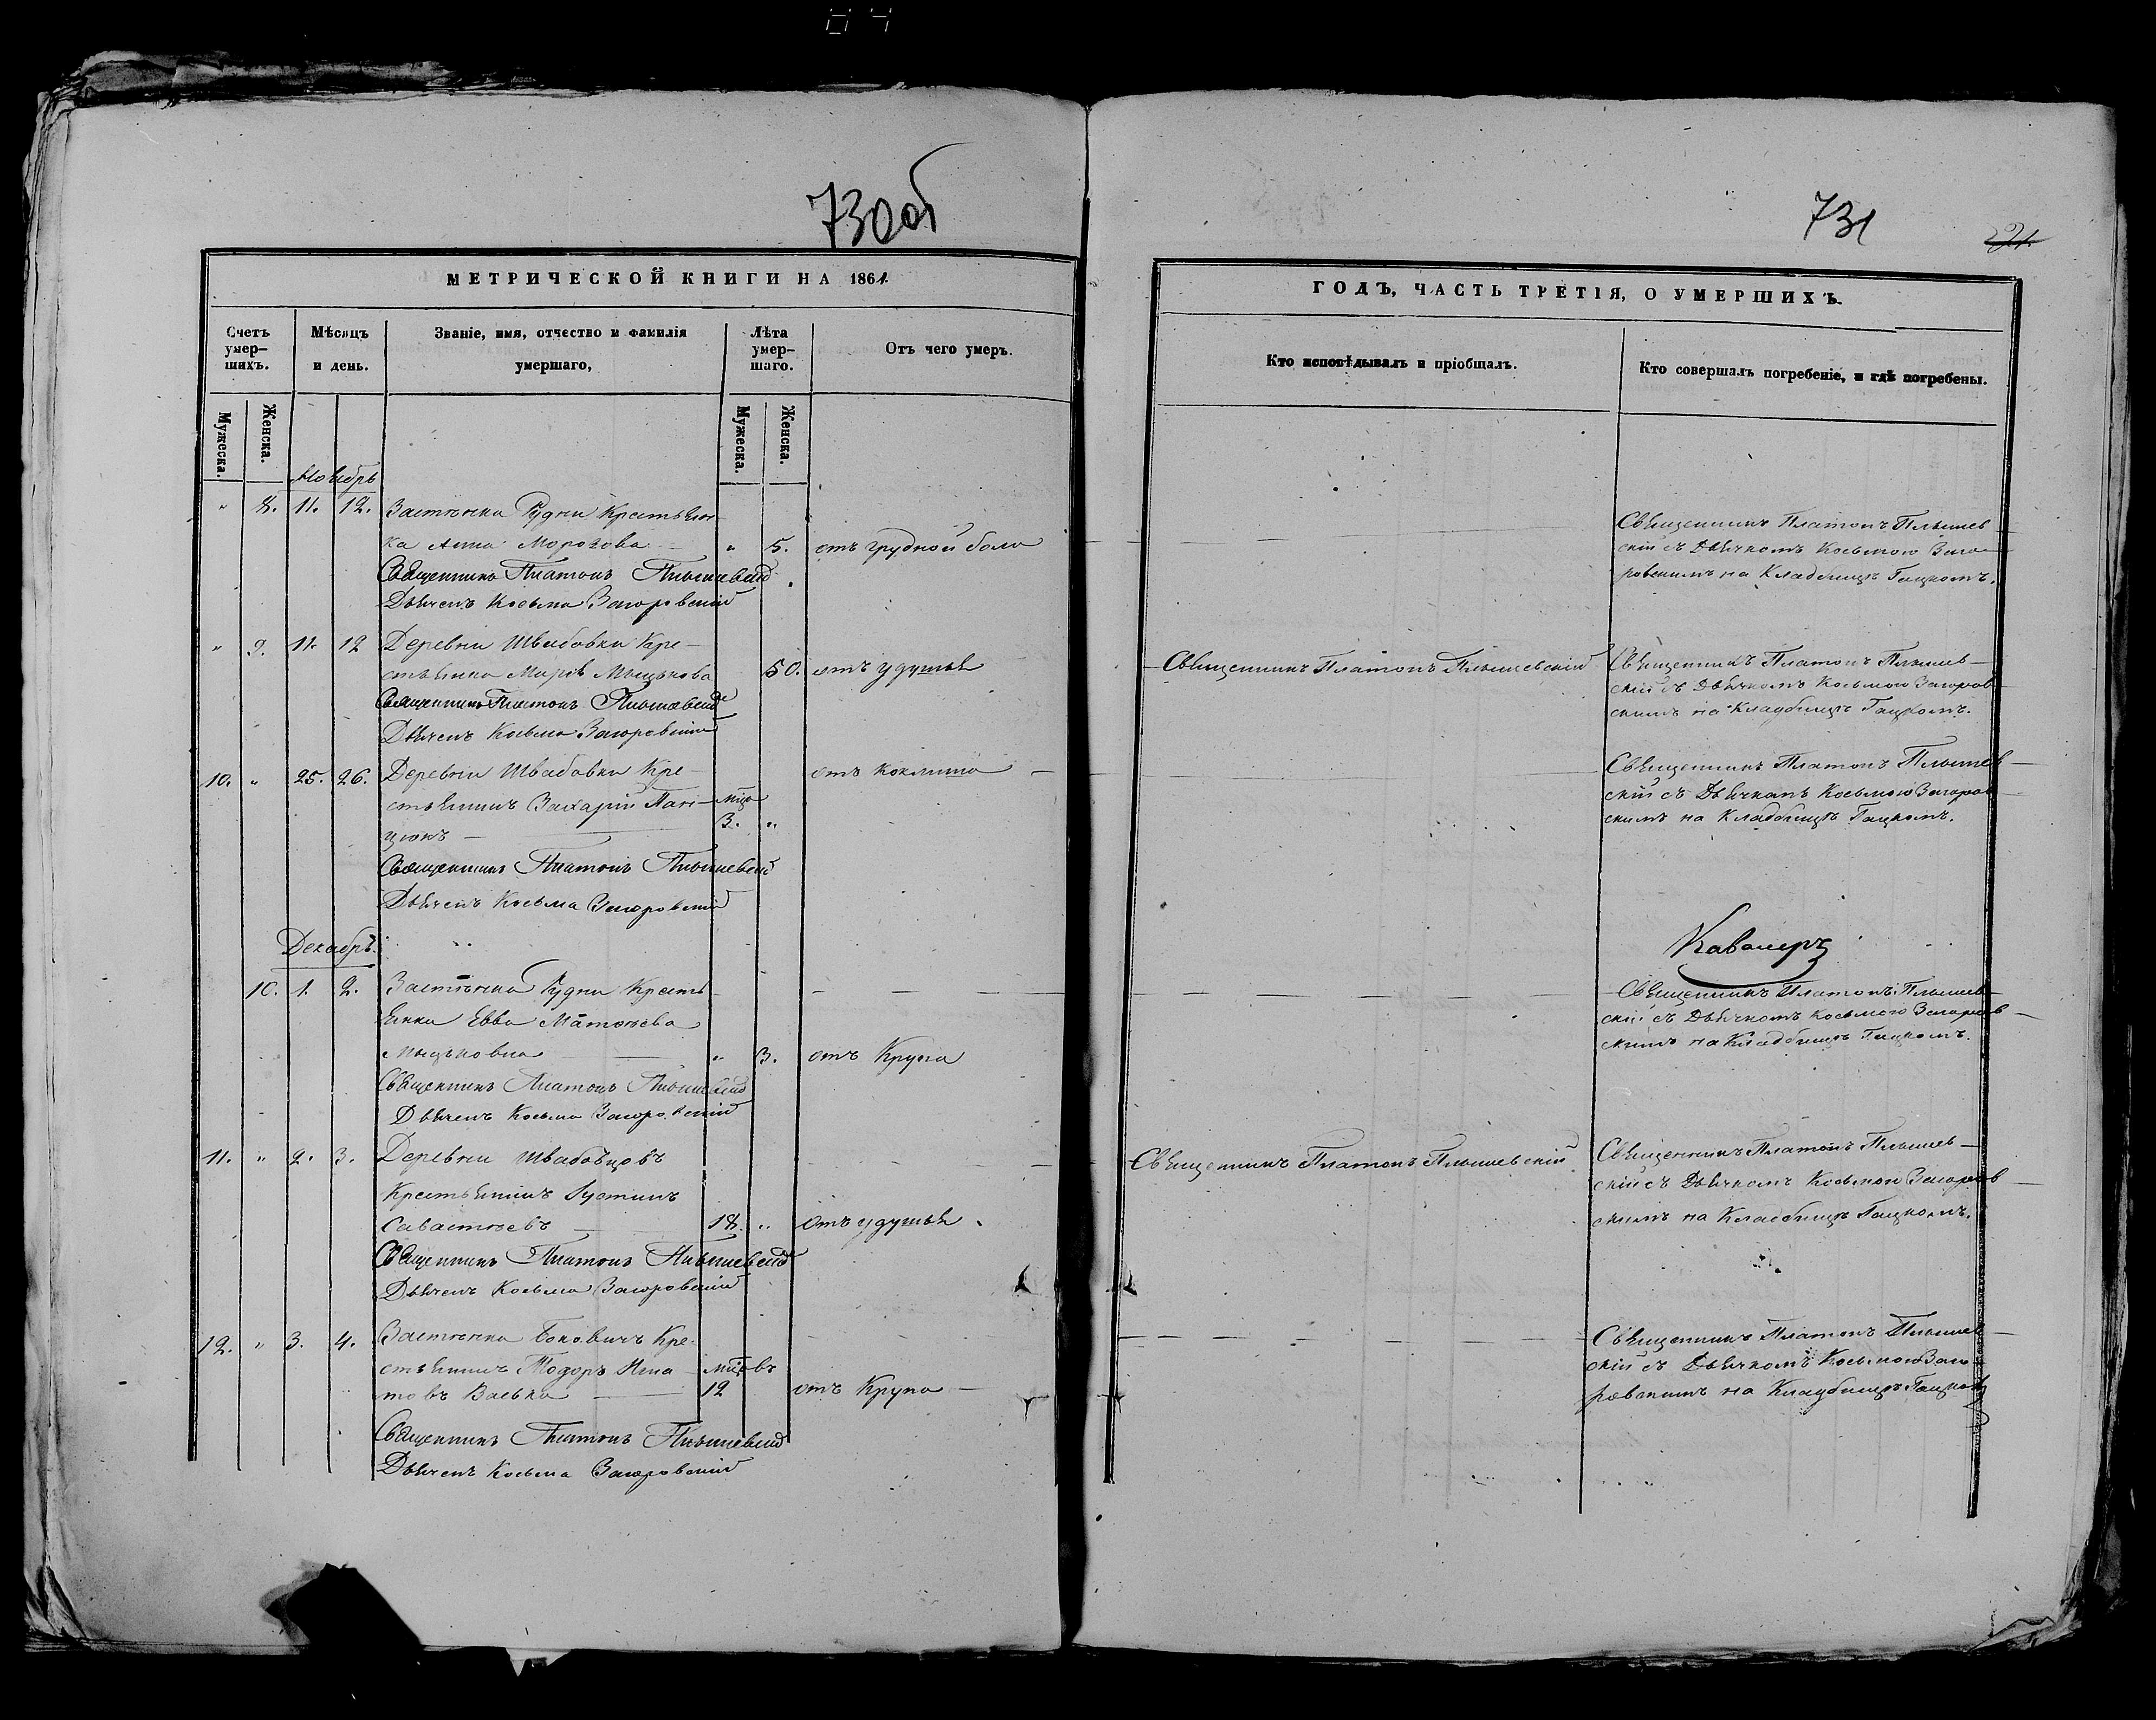 730об
МЕТРИЧЕСКОЙ КНИГИ НА 1861.
Счетъ умер-шихъ.
Мѣсяцъ и день.
Званіе, имя, отчество и фамилія умершаго,
Лѣта умер-шаго.
Отъ чего умеръ.
Мужеска.
Женска.
Мужеска.
Женска.
Ноябрь
" 8. 11. 12. Застѣнка Рудни Крестьян-
ка Анна Морозова " 5. отъ грудной боли
Священникъ Платонъ
Дьячекъ Косьма Загоровскій
" 9. 11. 12 Деревни Швабовки Кре-
стьянка Марѳа 50. отъ удушья
Священникъ Платонъ
Дьячекъ Косьма Загоровскій
10. " 25. 26. Деревни Швабовки Кре- отъ коклюша
стьянинъ Захарій Паш- мѣс.
цюкъ 3. "
Священникъ Платонъ
Дьячекъ Косьма Загоровскій
Декабрь.
10. 1. 2. Застѣнка Рудни Кресть
янка Евва Матѳѣева
" 3. отъ Крупа
Священникъ Платонъ
Дьячекъ Косьма Загоровскій
11. " 2. 3. Деревни Швабовцовъ
Крестьянинъ Іустинъ
Савастѣевъ 18. " отъ удушья.
Священникъ Платонъ
Дьячекъ Косьма Загоровскій
12. " 3. 4. Застѣнка Кре-
стьянинъ Тодоръ Игна- мѣс-въ
товъ Васько 12 отъ Крупа
Священникъ Платонъ
Дьячекъ Косьма Загоровскій
731
221
ГОДЪ, ЧАСТЬ ТРЕТІЯ, О УМЕРШИХЪ.
Кто исповѣдывалъ и пріобщалъ.
Кто совершалъ погребеніе, и гдѣ погребены.
Священникъ Платонъ
скій съ Дьячкомъ Косьмою Заго-
ровскимъ на Кладбищѣ Гацкомъ.
Священникъ Платонъ
Священникъ Платонъ
скій съ Дьячкомъ Косьмою Загоров-
скимъ на Кладбищѣ Гацкомъ.
Священникъ Платонъ
скій съ Дьячкомъ Косьмою Загоров-
скимъ на Кладбищѣ Гацкомъ.
Кавалеръ
Священникъ Платонъ
скій съ Дьячкомъ Косьмою Загоров-
скимъ на Кладбищѣ Гацкомъ.
Священникъ Платонъ
Священникъ Платонъ
скій съ Дьячкомъ Косьмою Загоров
скимъ на Кладбищѣ Гацкомъ.
Священникъ Платонъ
скій съ Дьячкомъ Косьмою Заго-
ровскимъ на Кладбищѣ Гацкомъ